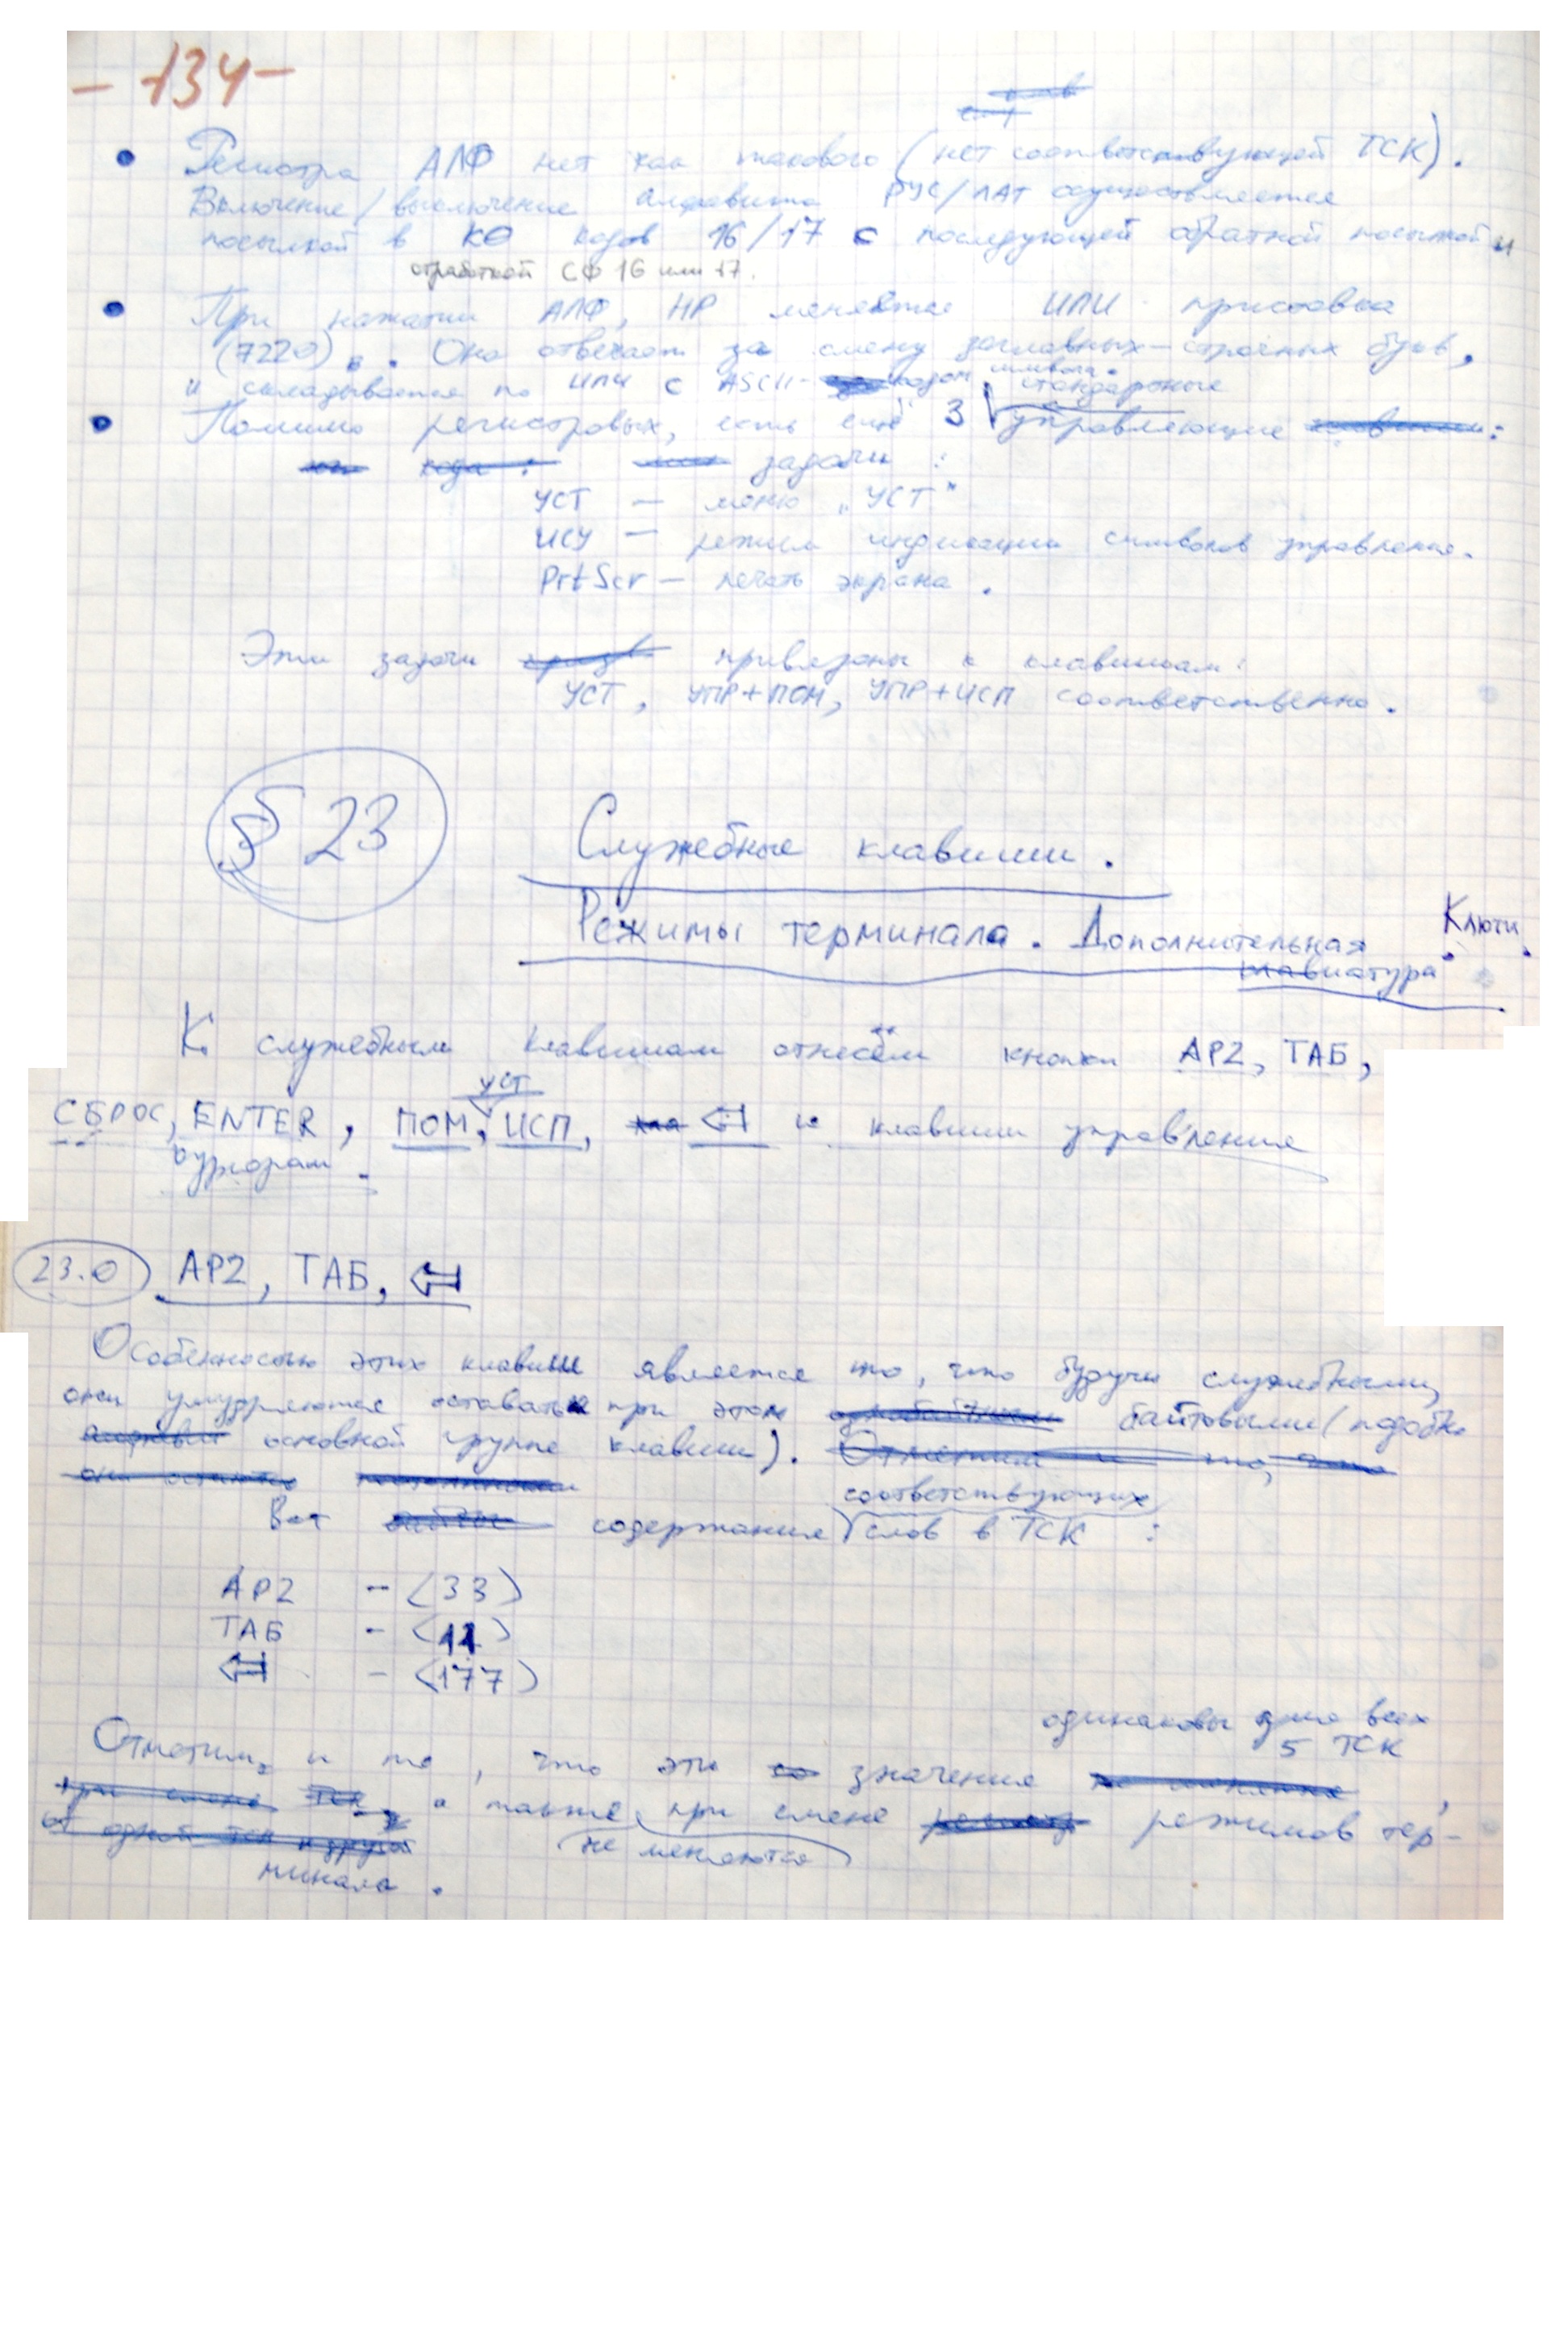 - 134 -
• Регистра АЛФ нет как такового (нет соответствующей ТСК).
Включение/выключение алфавита РУС/ЛАТ осуществляется
посылкой в КО кодов 16/17 с последующей обратной посылкой и
отработкой СФ 16 или 17.
• При нажатии АЛФ, НР меняется ИЛИ приставка
(7220). Она отвечает за смену заглавных-строчных букв,
и складывается по ИЛИ с ASCII- кодом символа.
стандартные
• Помимо регистровых, есть ещё 3 управляющие :
задачи :
УСТ — меню „УСТ"
ИСУ — режим индикации символов управления.
PrtScr — печать экрана.
Эти задачи привязаны к клавишам:
УСТ, УПР+ПОМ, УПР+ИСП соответственно.
§ 23 Служебные клавиши.
Режимы терминала. Дополнительная клавиатура. Ключи.
К служебным клавишам отнесём кнопки АР2, ТАБ,
УСТ
СБРОС, ENTER, ПОМ, ИСП, ⇦ и клавиши управления
курсорам.
23.0 АР2, ТАБ, ⇦
Особенностью этих клавиш является то, что будучи служебными,
они умудряются оставаться при этом байтовыми (подобно
основной группе клавиш).
соответствующих
Вот содержание слов в ТСК :
АР2 - (33)
ТАБ - (11)
⇦ - (177)
одинаковы для всех
5 ТСК
Отметим и то, что эти значения ,
а также при смене режимов тер-
не меняются
минала.